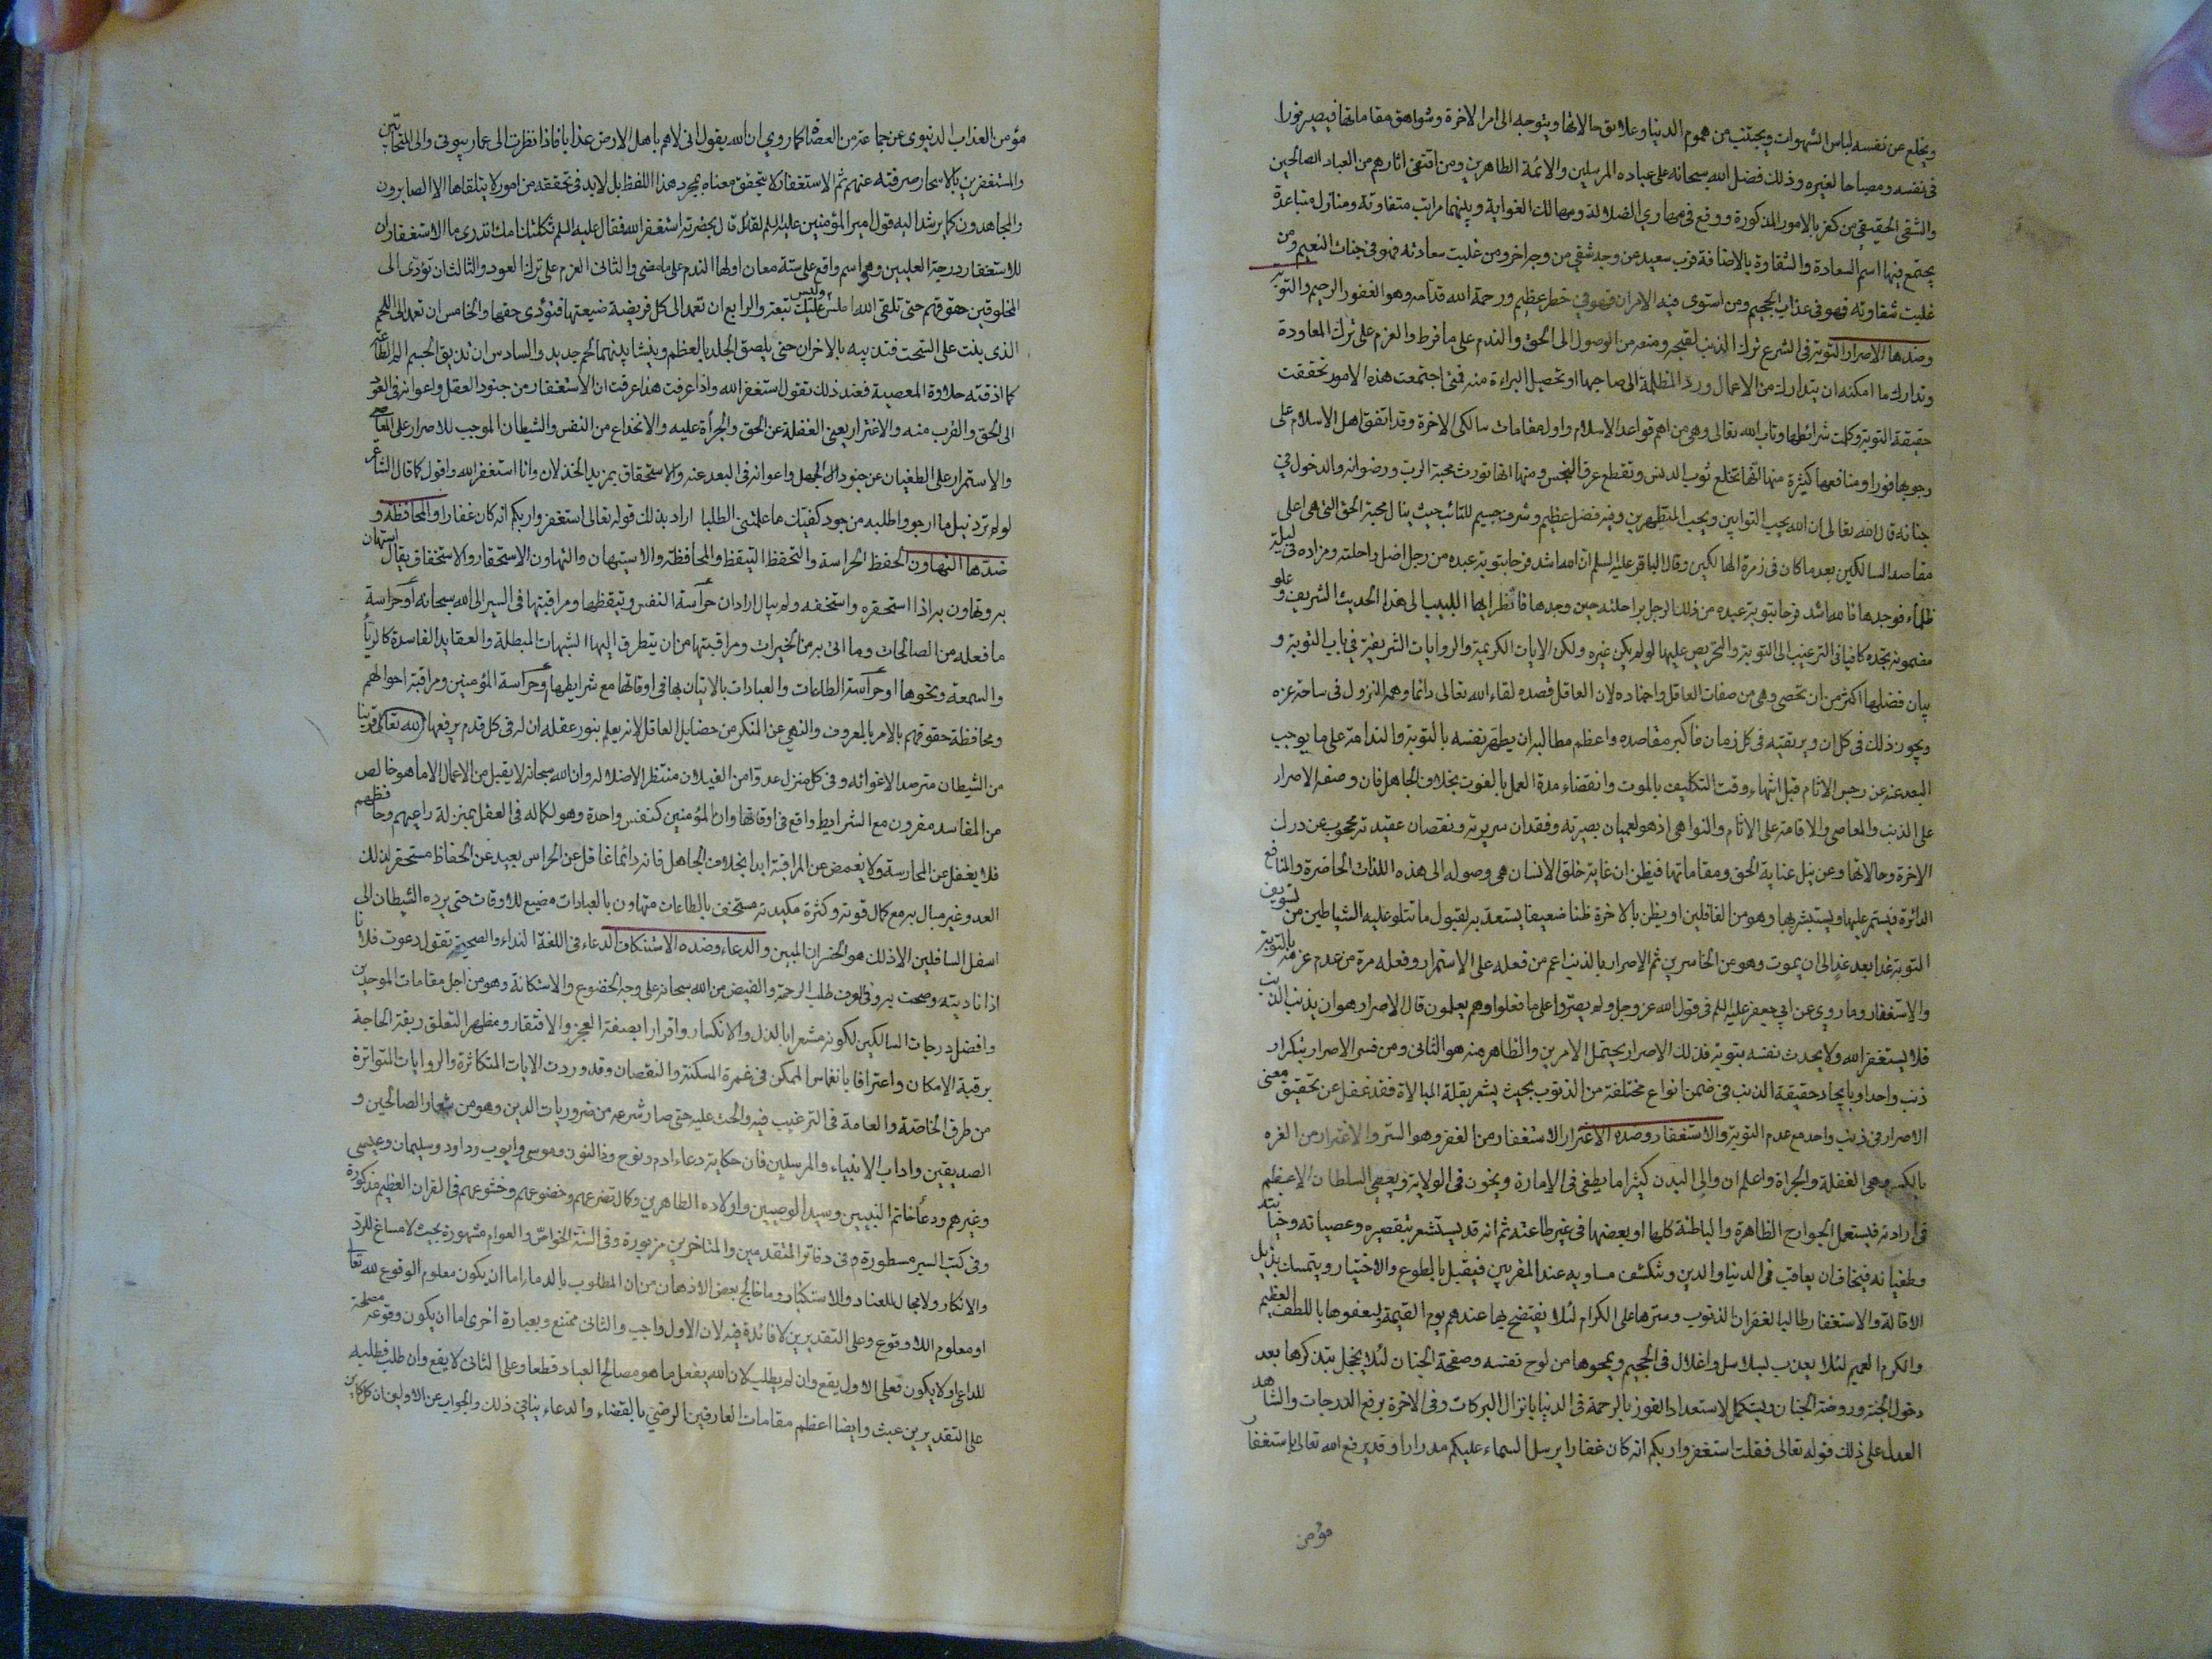 ويخلع عن نفسه لباس الشهوات ويجتنب من هموم الدنيا وعلايق حالاتها ويتوجه الى امر الاخرة وشواهق مقاماتها فيصير نورا
فى نفسه ومصباحا لغيره وذلك فضل الله سبحانه على عباده المرسلين والائمة الطاهرين ومن اقتفى اثارهم من العباد الصالحين
والشقى الحقيقى من كفر بالامور المذكورة ووقع فى مهاوي الضلالة ومهالك الغواية وبينهما مراتب متفاوتة ومنازل متباعدة
يجتمع فيها اسم السعادة والشقاوة بالاضافة فرب سعيد من وجه شقي من وجه اخر ومن غلبت سعادته فهو فى جنات النعيم ومن
غلبت شقاوته فهو فى عذاب الجحيم ومن استوى فيه الامران فهو في خطر عظيم ورحمة الله قدامه وهو الغفور الرحيم والتوبة
وضدها الاصرار التوبة فى الشرع ترك الذنب لقبحه ومنعه من الوصول الى الحق والندم على ما فرط والعزم على ترك المعاودة
وتدارك ما امكنه ان يتدارك من الاعمال ورد المظلمة الى صاحبها او تحصيل البراءة منه فمتى اجتمعت هذه الامور تحققت
حقيقة التوبة وكملت شرائطها وتاب الله تعالى وهى من اهم قواعد الاسلام واول مقامات سالكى الاخرة وقد اتفق اهل الاسلام على
وجوبها فورا ومنافعها كثيرة منها انها تخلع ثوب الدنس وتقطع عرق النجس ومنها انها تورث محبة الرب ورضوانه والدخول في
جنانه قال الله تعالى ان الله يحب التوابين ويحب المتطهرين وفيه فضل عظيم وشرف جسيم للتائب حيث ينال محبة الحق التى هى اعلى
مقاصد السالكين بعد ما كان فى زمرة الهالكين وقال الباقر عليه السلم ان الله اشد فرحا بتوبة عبده من رجل اضل راحلته ومزاده فى ليلة
ظلماء فوجدها فالله اشد فرحا بتوبة عبده من ذلك الرجل براحلته حين وجدها فانظر ايها اللبيب الى هذا الحديث الشريف وعلو
مضمونه تجده كافيا فى الترغيب الى التوبة والتحريص عليها لو لم يكن غيره ولكن الايات الكريمة والروايات الشريفة في باب التوبة و
بيان فضلها اكثر من ان تحصى وهى من صفات العاقل واجناده لان العاقل قصده لقاء الله تعالى دائما وهمه النزول فى ساحة عزه
ويجوز ذلك فى كل ان ويرتقبه فى كل زمان فاكبر مقاصده واعظم مطالبه ان يطهر نفسه بالتوبة والندامة على ما يوجب
البعد عنه عن رجس الاثام قبل انتهاء وقت التكليف بالموت وانقضاء مدة العمل بالفوت بخلاف الجاهل فان وصفه الاصرار
على الذنب والمعاصي والاقامة على الاثام والنواهى اذ هو لعميان بصيرته وفقدان سريرته ونقصان عقيدته محجوب عن درك
الاخرة وحالاتها وعن نيل عناية الحق ومقاماتها فيظن ان غاية خلق الانسان هى وصوله الى هذه اللذات الحاضرة والمنافع
الدائرة فيستمر عليها ويستبشر بها وهو من الغافلين او يظن بالاخرة ظنا ضعيفا يستعد به لقبول ما تتلو عليه الشياطين من تسويف
التوبة غدا بعد غد الى ان يموت وهو من الخاسرين ثم الاصرار بالذنب اعم من فعله على الاستمرار وفعله مرة مع عدم عزمه بالتوبة
والاستغفار وما روي عن ابي جعفر عليه السلم فى قول الله عز وجل ولم يصروا على ما فعلوا وهم يعلمون قال الاصرار هو ان يذنب الذنب
فلا يستغفر الله ولا يحدث نفسه بتوبة فذلك الاصرار يحتمل الامرين والظاهر منه هو الثانى ومن فسر الاصرار بتكرار
ذنب واحد او بايجاد حقيقة الذنب فى ضمن انواع مختلفة من الذنوب بحيث يشعر بقلة المبالاة فقد غفل عن تحقيق معنى
الاصرار فى ذنب واحد مع عدم التوبة والاستغفار وضده الاغترار الاستغفار من الغفر وهو الستر والاغترار من الغرة
بالكسر وهى الغفلة والجراة واعلم ان والى البدن كثيرا ما يطغى فى الامارة ويخون فى الولاية ويعصي السلطان الاعظم
فى ارادته فيستعمل الجوارح الظاهرة والباطنة كلها او بعضها فى غير طاعته ثم انه قد يستشعر بتقصيره وعصيانه وخيانته
وطغيانه فيخاف ان يعاقب فى الدنيا والدين وتنكشف مساويه عند المقربين فيقبل بالطوع والاختيار ويتمسك بذيل
الاقالة والاستغفار طالبا لغفران الذنوب وسترها على الكرام لئلا يفتضح بها عندهم يوم القيمة وليعفوها باللطف العظيم
والكرم العميم لئلا يعذب بسلاسل واغلال فى الجحيم ويمحوها من لوح نفسه وصفحة الجنان لئلا يخجل بتذكرها بعد
دخول الجنة وروضة الجنان ويستكمل الاستعداد للفوز بالرحمة فى الدنيا بانزال البركات وفى الاخرة برفع الدرجات والشاهد
العدل على ذلك قوله تعالى فقلت استغفروا ربكم انه كان غفارا يرسل السماء عليكم مدرارا وقد يرفع الله تعالى باستغفار
مؤمن
مؤمن العذاب الدنيوى عن جماعة من العصاة كما روي ان الله يقول انى لاهم باهل الارض عذابا فاذا نظرت الى عمار بيوتى والى المتحابين
والمستغفرين بالاسحار صرفته عنهم ثم الاستغفار لا يتحقق معناه بمجرد هذا اللفظ بل لابد فى تحققه من امور لا يتلقاها الا الصابرون
والمجاهدون كما يرشد اليه قول امير المؤمنين عليه السلم لقائل قال بحضرته استغفر الله فقال عليه السلم ثكلتك امك اتدرى ما الاستغفار ان
للاستغفار درجة العليين وهو اسم واقع على ستة معان اولها الندم على ما مضى والثانى العزم على ترك العود والثالث ان تؤدى الى
المخلوقين حقوقهم حتى تلقى الله املس وليس عليك تبعة والرابع ان تعمد الى كل فريضة ضيعتها فتؤدى حقها والخامس ان تعمد الى اللحم
الذى ينبت على السحت فتذيبه بالاحزان حتى يلصق الجلد بالعظم وينشا بينهما لحم جديد والسادس ان تذيق الجسم الم الطاعة
كما اذقته حلاوة المعصية فعند ذلك تقول استغفر الله واذا عرفت هذا عرفت ان الاستغفار من جنود العقل واعوانه فى العود
الى الحق والقرب منه والاغترار يعنى الغفلة عن الحق والجرأة عليه والانخداع من النفس والشيطان الموجب للاصرار على المعاصى
والاستمرار على الطغيان من جنود الجهل واعوانه فى البعد عنه والاستحقاق بمزيد الخذلان وانا استغفر الله واقول كما قال الشاعر
لو لم ترد نيل ما ارجو واطلبه من جود كفيك ما علمتنى الطلبا اراد بذلك قوله تعالى استغفروا ربكم انه كان غفارا والمحافظة و
ضدها التهاون الحفظ الحراسة والتحفظ التيقظ والمحافظة والاستهان والتهاون الاستحقار والاستخفاف يقال استهان
به وتهاون به اذا استحقره واستخفه ولم يبال اراد ان حراسة النفس وتيقظها ومراقبتها فى السير الى الله سبحانه او حراسة
ما فعله من الصالحات وما اتى به من الخيرات ومراقبتها من ان يتطرق اليها الشبهات المبطلة والعقايد الفاسدة كالريا
والسمعة ونحوها او حراسة الطاعات والعبادات بالاتيان بها فى اوقاتها مع شرايطها او حراسة المؤمنين ومراقبة احوالهم
ومحافظة حقوقهم بالامر بالمعروف والنهي عن المنكر من خصايل العاقل لانه يعلم بنور عقله ان له فى كل قدم يرفعها لله تعالى قرينا
من الشيطان مترصدا لاغوائه وفى كل منزل عدوا من الغيلان منتظرا لاضلاله وان الله سبحانه لا يقبل من الاعمال الا ما هو خالص
من المفاسد مقرون مع الشرايط واقع فى اوقاتها وان المؤمنين كنفس واحدة وهو لكماله فى العقل بمنزلة راعيهم وحافظهم
فلا يغفل عن الحارسة ولا يغمض عن المراقبة ابدا بخلاف الجاهل فانه دائما غافل عن الحراس بعيد عن الحفاظ مستحقر لذلك
العدو غير مبال به مع كمال قوته وكثرة مكيدته مستخف بالطاعات متهاون بالعبادات مضيع للاوقات حتى يرده الشيطان الى
اسفل السافلين الا ذلك هو الخسران المبين والدعاء وضده الاستنكاف الدعاء فى اللغة النداء والصيحة تقول دعوت فلانا
اذا ناديته وصحت به وفى العرف طلب الرحمة والفيض من الله سبحانه على وجه الخضوع والاستكانة وهو من اجل مقامات الموحدين
وافضل درجات السالكين لكونه مشعرا بالذل والانكسار واقرارا بصفة العجز والافتقار ومظهرا لتعلق ربقة الحاجة
برقبة الامكان واعترافا بانغماس الممكن فى غمرة المسكنة والنقصان وقد وردت الايات المتكاثرة والروايات المتواترة
من طرق الخاصة والعامة فى الترغيب فيه والحث عليه حتى صار شرعه من ضروريات الدين وهو من شعار الصالحين و
الصديقين واداب الانبياء والمرسلين فان حكاية دعاء ادم ونوح وذا النون وموسى وايوب وداود وسليمان وعيسى
وغيرهم ودعا خاتم النبيين وسيد الوصيين واولاده الطاهرين وكمال تضرعهم وخضوعهم وخشوعهم فى القران العظيم مذكورة
وفى كتب السير مسطورة وفى دفاتر المتقدمين والمتاخرين مزبورة وفى السنة الخواص والعوام مشهورة بحيث لا مساغ للرد
والانكار ولا مجال للعناد والاستكبار وما خالج بعض الاذهان من ان المطلوب بالدعاء اما ان يكون معلوم الوقوع لله تعالى
او معلوم اللاوقوع وعلى التقديرين لا فائدة فيه لان الاول واجب والثانى ممتنع وبعبارة اخرى اما ان يكون وقوعه مصلحة
للداعى او لا يكون فعلى الاول يقع وان لم يطلب لان الله يفعل ما هو مصالح العباد قطعا وعلى الثانى لا يقع وان طلب فطلبه
على التقديرين عبث وايضا اعظم مقامات العارفين الرضي بالقضاء والدعاء ينافي ذلك والجواب عن الاولين ان كل كاين